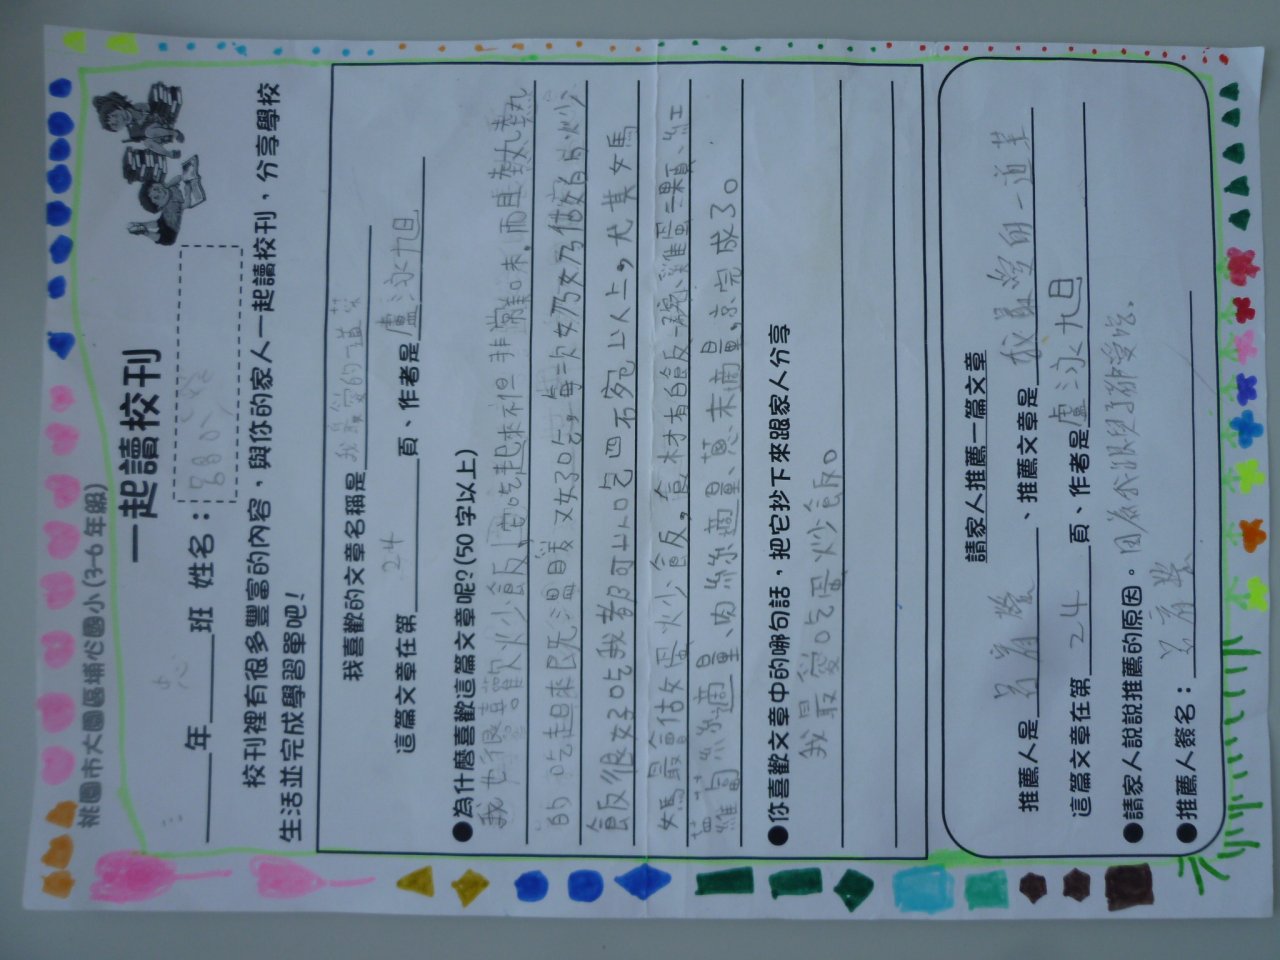 桃園市大園區埔心國小(3-6年級)
一起讀校刊
三年 忠 班 姓名：
校刊裡有很多豐富的內容，與你的家人一起讀校刊，分享學校
生活並完成學習單吧！
我喜歡的文章名稱是 我最愛的一道菜
這篇文章在第 24 頁、作者是 盧泳旭
●為什麼喜歡這篇文章呢?(50字以上)
我也很喜歡炒飯，它吃起來不但非常美味，而且熱熱
的吃起來既溫暖又好吃，每次奶奶做的炒
飯很好吃我都可以吃四碗以上，尤其媽
媽最會做蛋炒飯，食材有白飯一碗、雞蛋三顆、紅
蘿蔔絲適量、肉絲適量、蔥末適量，就完成了。
●你喜歡文章中的哪句話，把它抄下來跟家人分享
我最愛吃蛋炒飯。
請家人推薦一篇文章
推薦人是 、推薦文章是 我最愛的一道菜
這篇文章在第 24 頁、作者是 盧泳旭
●請家人說說推薦的原因。因為我很兒子都愛吃.
●推薦人簽名：